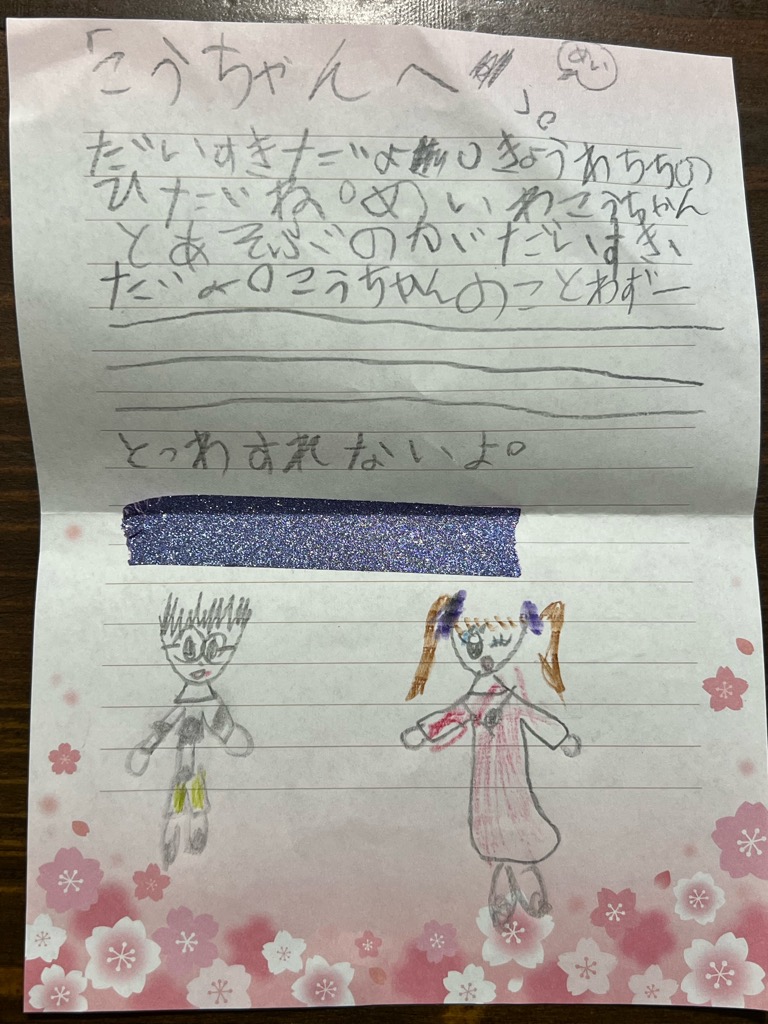 「こうちゃんへ
」。
めい
だいすきだよ。きょうわちちの
ひだね。めいわこうちゃん
とあそぶのがだいすき、
だよ。こうちゃんのことわずー
とっわすれないよ。